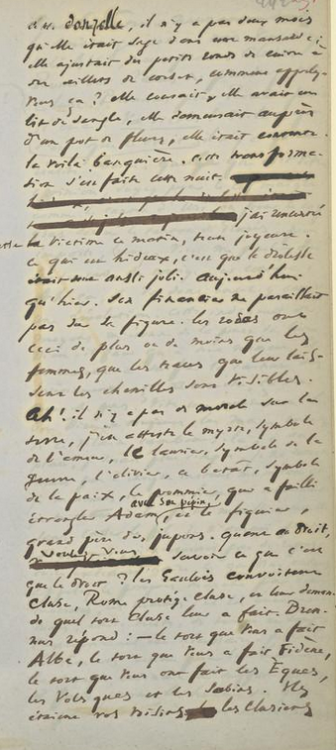 donzelle, il n'y a pas deux mois
qu'elle était sage dans une mansarde,
elle ajustait des petits ronds de cuivre à
des œillets de corset, comment appelez-
vous ça ? elle cousait, elle avait un
lit de sangle, elle demeurait auprès
d'un pot de fleurs, elle était contente.
la voilà banquière. cette transforma-
tion s'est faite cette nuit.
j'ai rencontré
la victime ce matin, toute joyeuse.
ce qui est hideux, c'est que la drôlesse
était aussi jolie aujourd'hui
qu'hier. Son financier ne paraissait
pas sur sa figure. les roses ont
ceci de plus ou de moins que les
femmes, que les traces que leur lais-
sent les chenilles sont visibles.
Ah ! il n'y a pas de morale sur la
terre, j'en atteste le myrte, symbole
de l'amour, le laurier, symbole de la
guerre, l'olivier, ce bêta, symbole
de la paix, le pommier, qui a failli
étrangler Adam avec son pépin, et le figuier,
grand père des jupons. quant au droit,
voulez-vous savoir ce que c'est
que le droit ? les Gaulois convoitent
Cluse, Rome protège Cluse, et leur demande
quel tort Cluse leur a fait. Bren-
nus répond : — le tort que vous a fait
Albe, le tort que vous a fait Fidène,
le tort que vous ont fait les Èques,
les Volsques et les Sabins. Ils
étaient vos voisins. les Clusiens